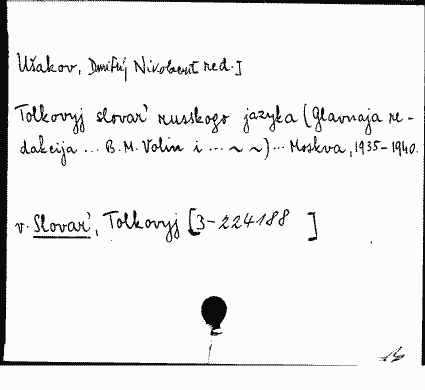 Ušakov, Dmitrij Nikolaevič red.]
Tolkovyj slovar' russkogo jazyka (Glavnaja re-
dakcija ... B.M. Volin i ... ~ ~) ... Moskva, 1935-1940.
v. Slovar', Tolkovyj [3-224188 ]